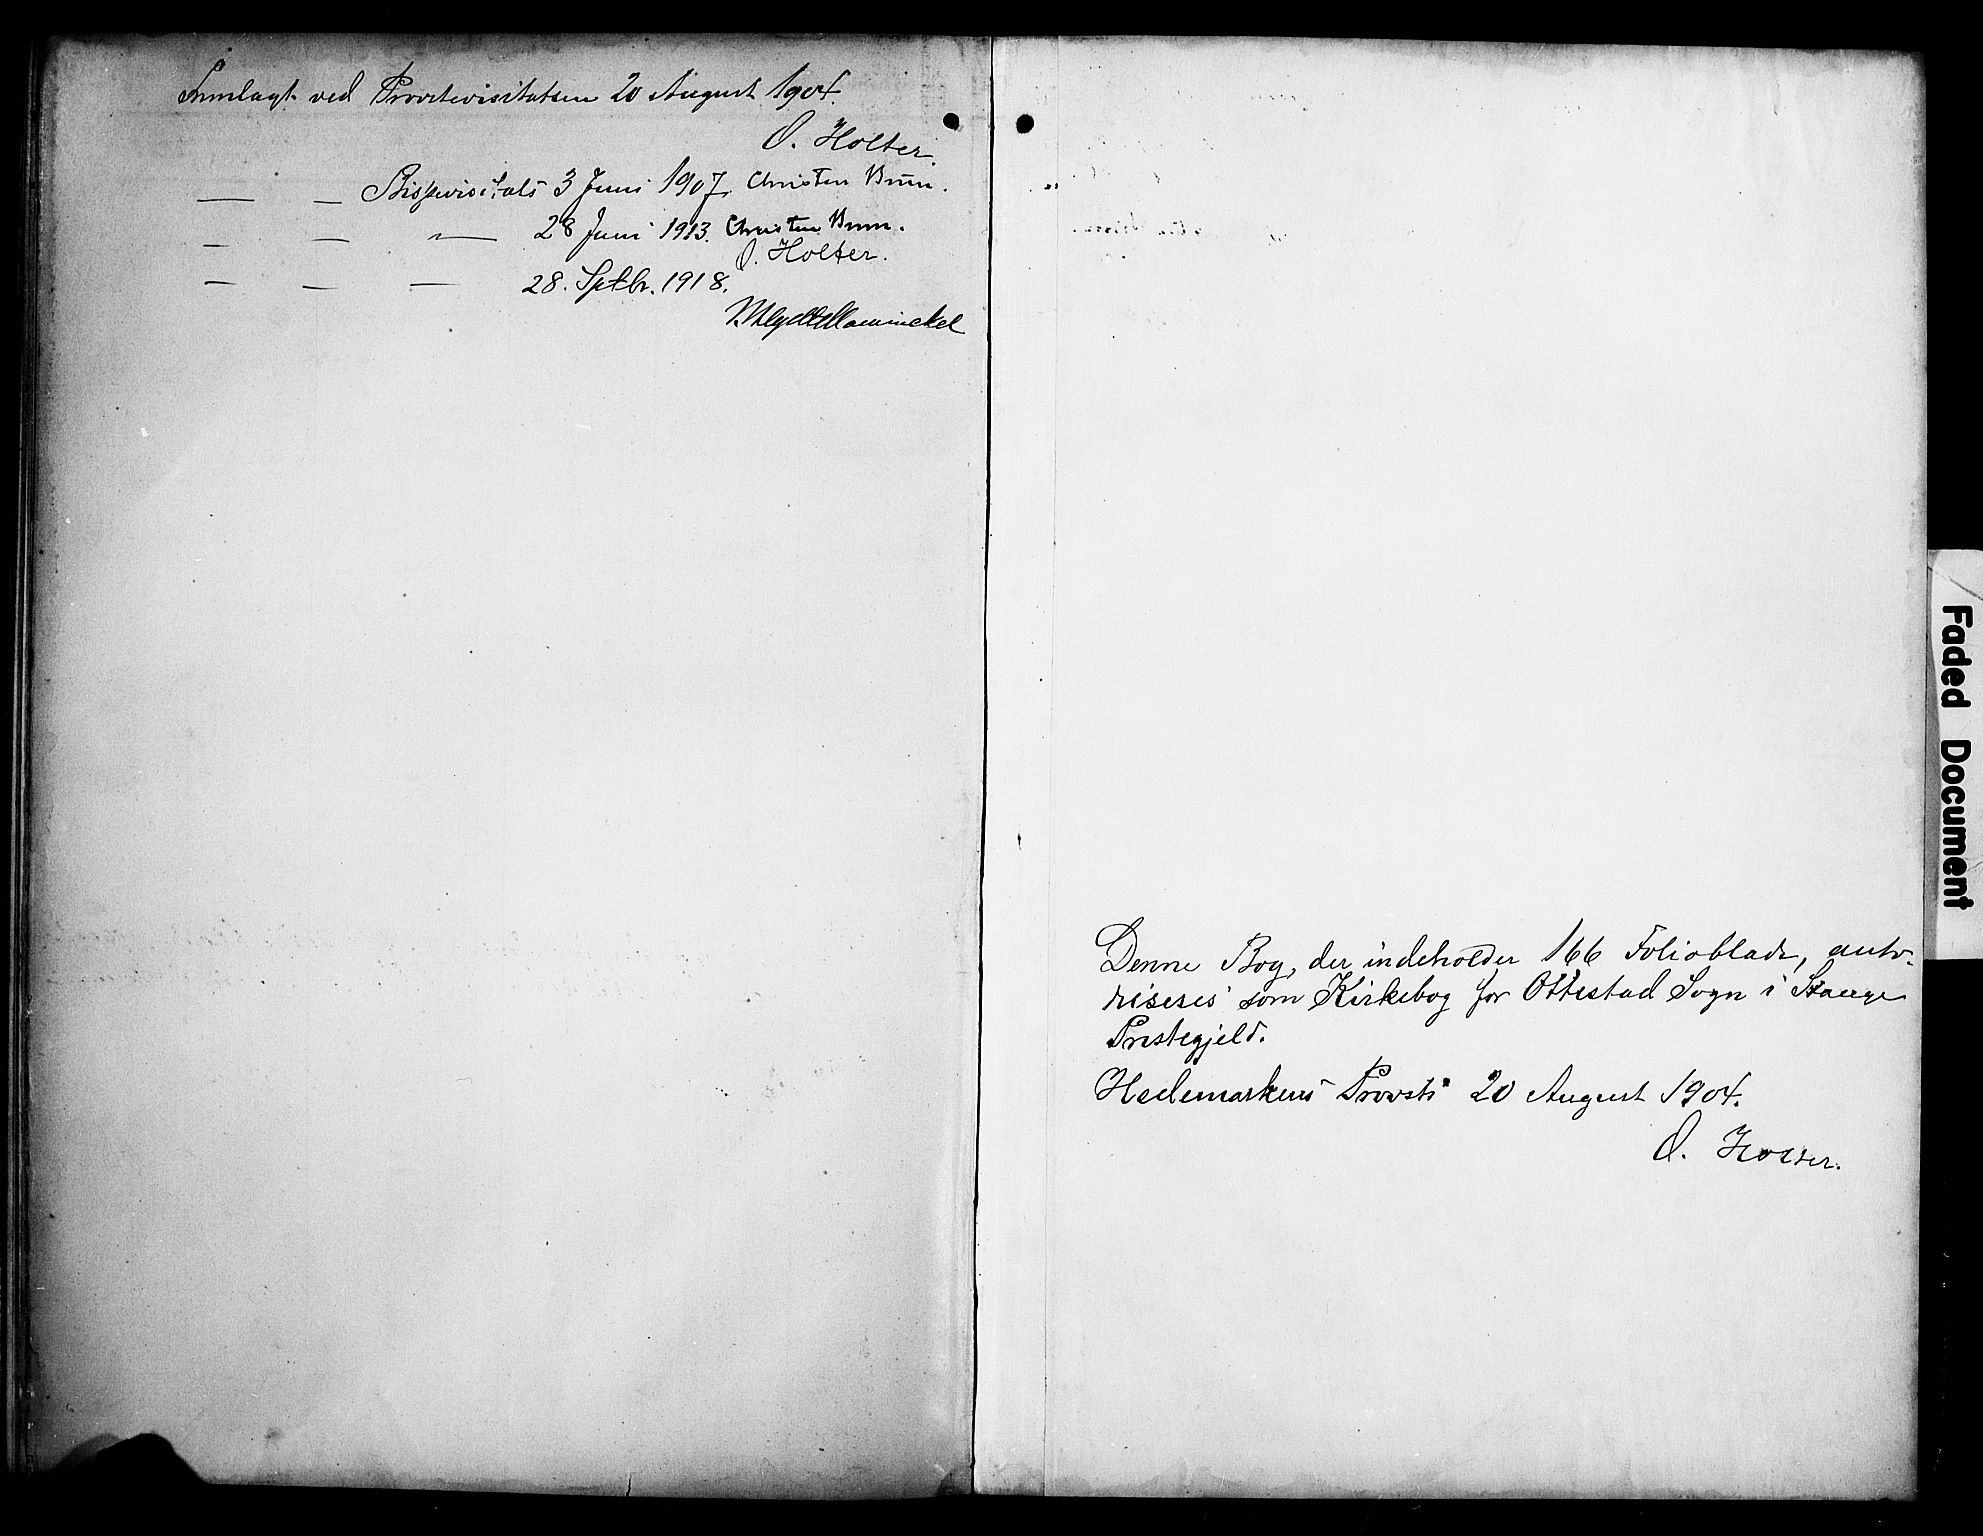 Fremlagt ved Provstevisitatsen 20 August 1904.
O. Holter.
— — Bispevisitats 3 Juni 1907. Christen Brun.
— — — 28 Juni 1913. Christen Brun.
O. Holter.
— — — 28. Septbr. 1918.
Mowinckel
Denne Bog, der indeholder 166 Folioblade, auto-
riseres som Kirkebog for Ottestad Sogn i Stange
Prestegjeld.
Hedemarkens Provsti 20 August 1904.
O. Holter.
Faded Document